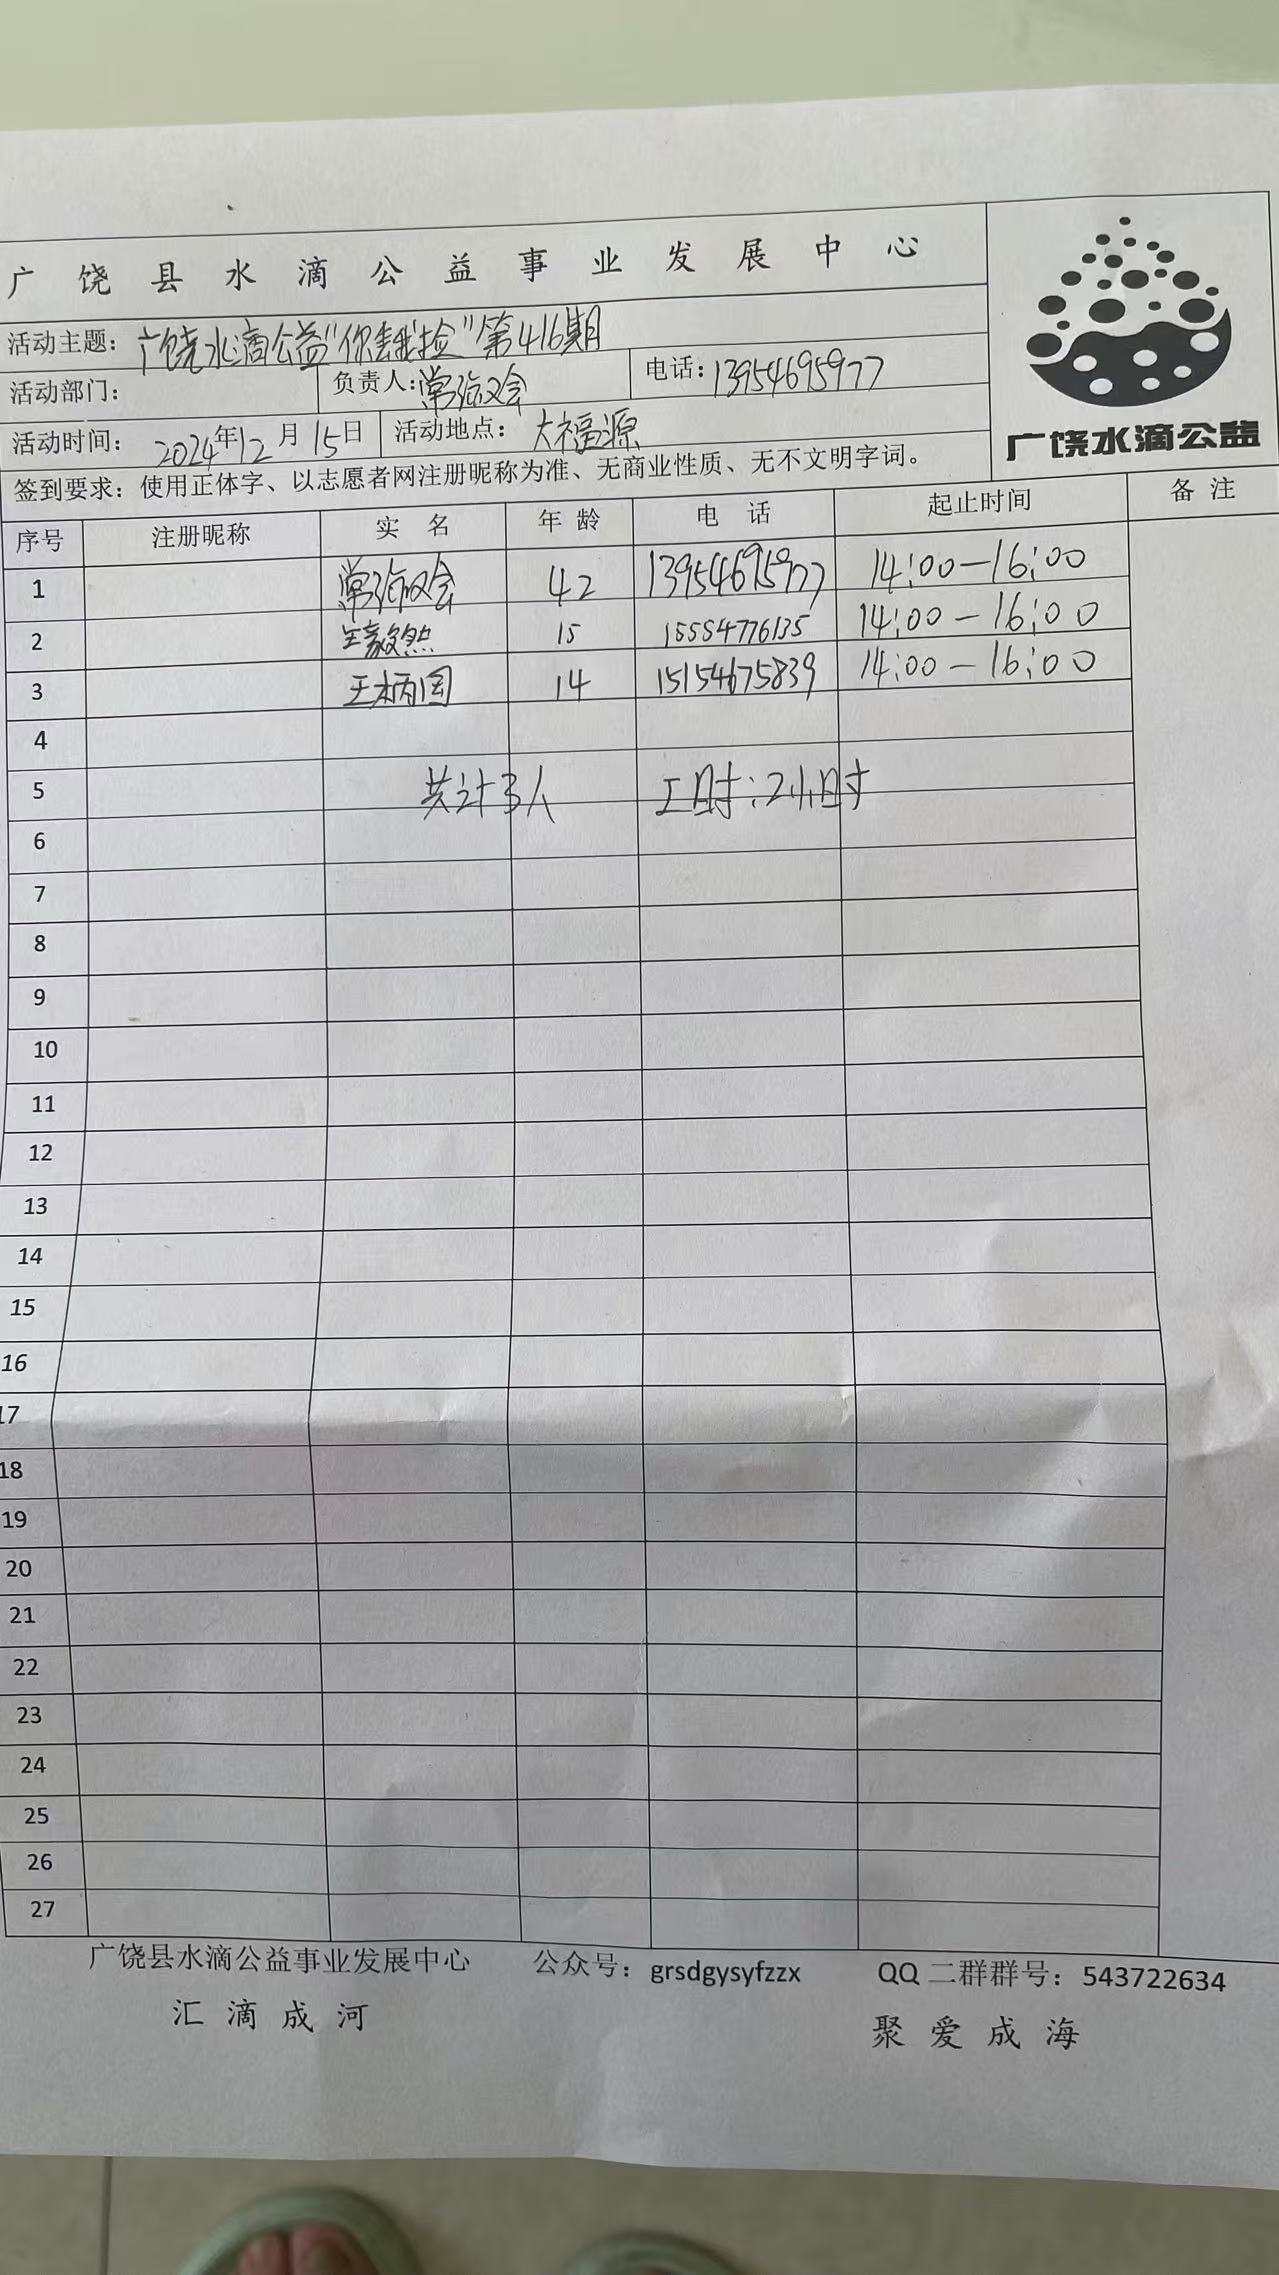 广饶县水滴公益事业发展中心
活动主题：广饶水滴公益"你丢我捡"第416期
活动部门： 负责人：常海双会 电话：13954695977
活动时间： 2024年12月15日 活动地点：大福源
广饶水滴公益
签到要求：使用正体字、以志愿者网注册昵称为准、无商业性质、无不文明字词。
序号 注册昵称 实名 年龄 电话 起止时间 备注
1 42 13954695977 14:00—16:00
2 王豪然 15 15554776135 14:00—16:00
3 王炳国 14 15154675839 14:00—16:00
4
5 共计3人 工时：2小时
6
7
8
9
10
11
12
13
14
15
16
17
18
19
20
21
22
23
24
25
26
27
广饶县水滴公益事业发展中心 公众号：grsdgysyfzzx QQ二群群号：543722634
汇滴成河 聚爱成海